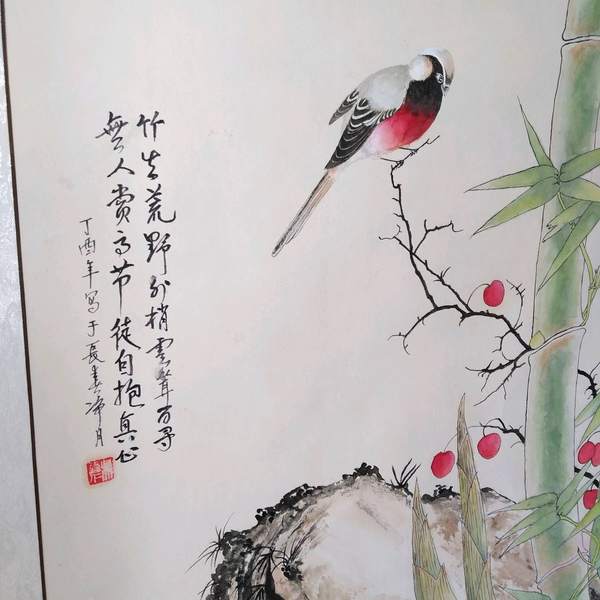 竹生荒野外梢雲聳百寻
無人赏高节徒自抱真心
丁酉年写于長春净月